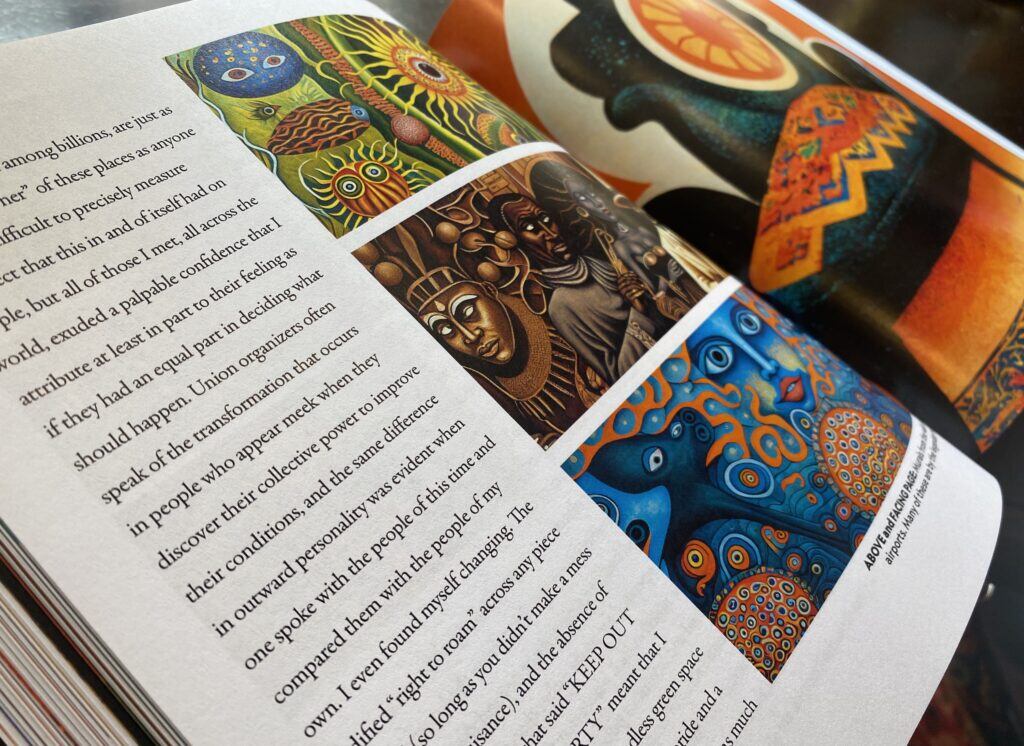 among billions, are just as
ner” of these places as anyone
ifficult to precisely measure
ect that this in and of itself had on
ple, but all of those I met, all across the
world, exuded a palpable confidence that I
attribute at least in part to their feeling as
if they had an equal part in deciding what
should happen. Union organizers often
speak of the transformation that occurs
in people who appear meek when they
discover their collective power to improve
their conditions, and the same difference
in outward personality was evident when
one spoke with the people of this time and
compared them with the people of my
own. I even found myself changing. The
dified “right to roam” across any piece
(so long as you didn’t make a mess
isance), and the absence of
hat said “KEEP OUT
RTY” meant that I
dless green space
ride and a
as much
ABOVE and FACING PAGE: Murals
airports. Many of these are by the